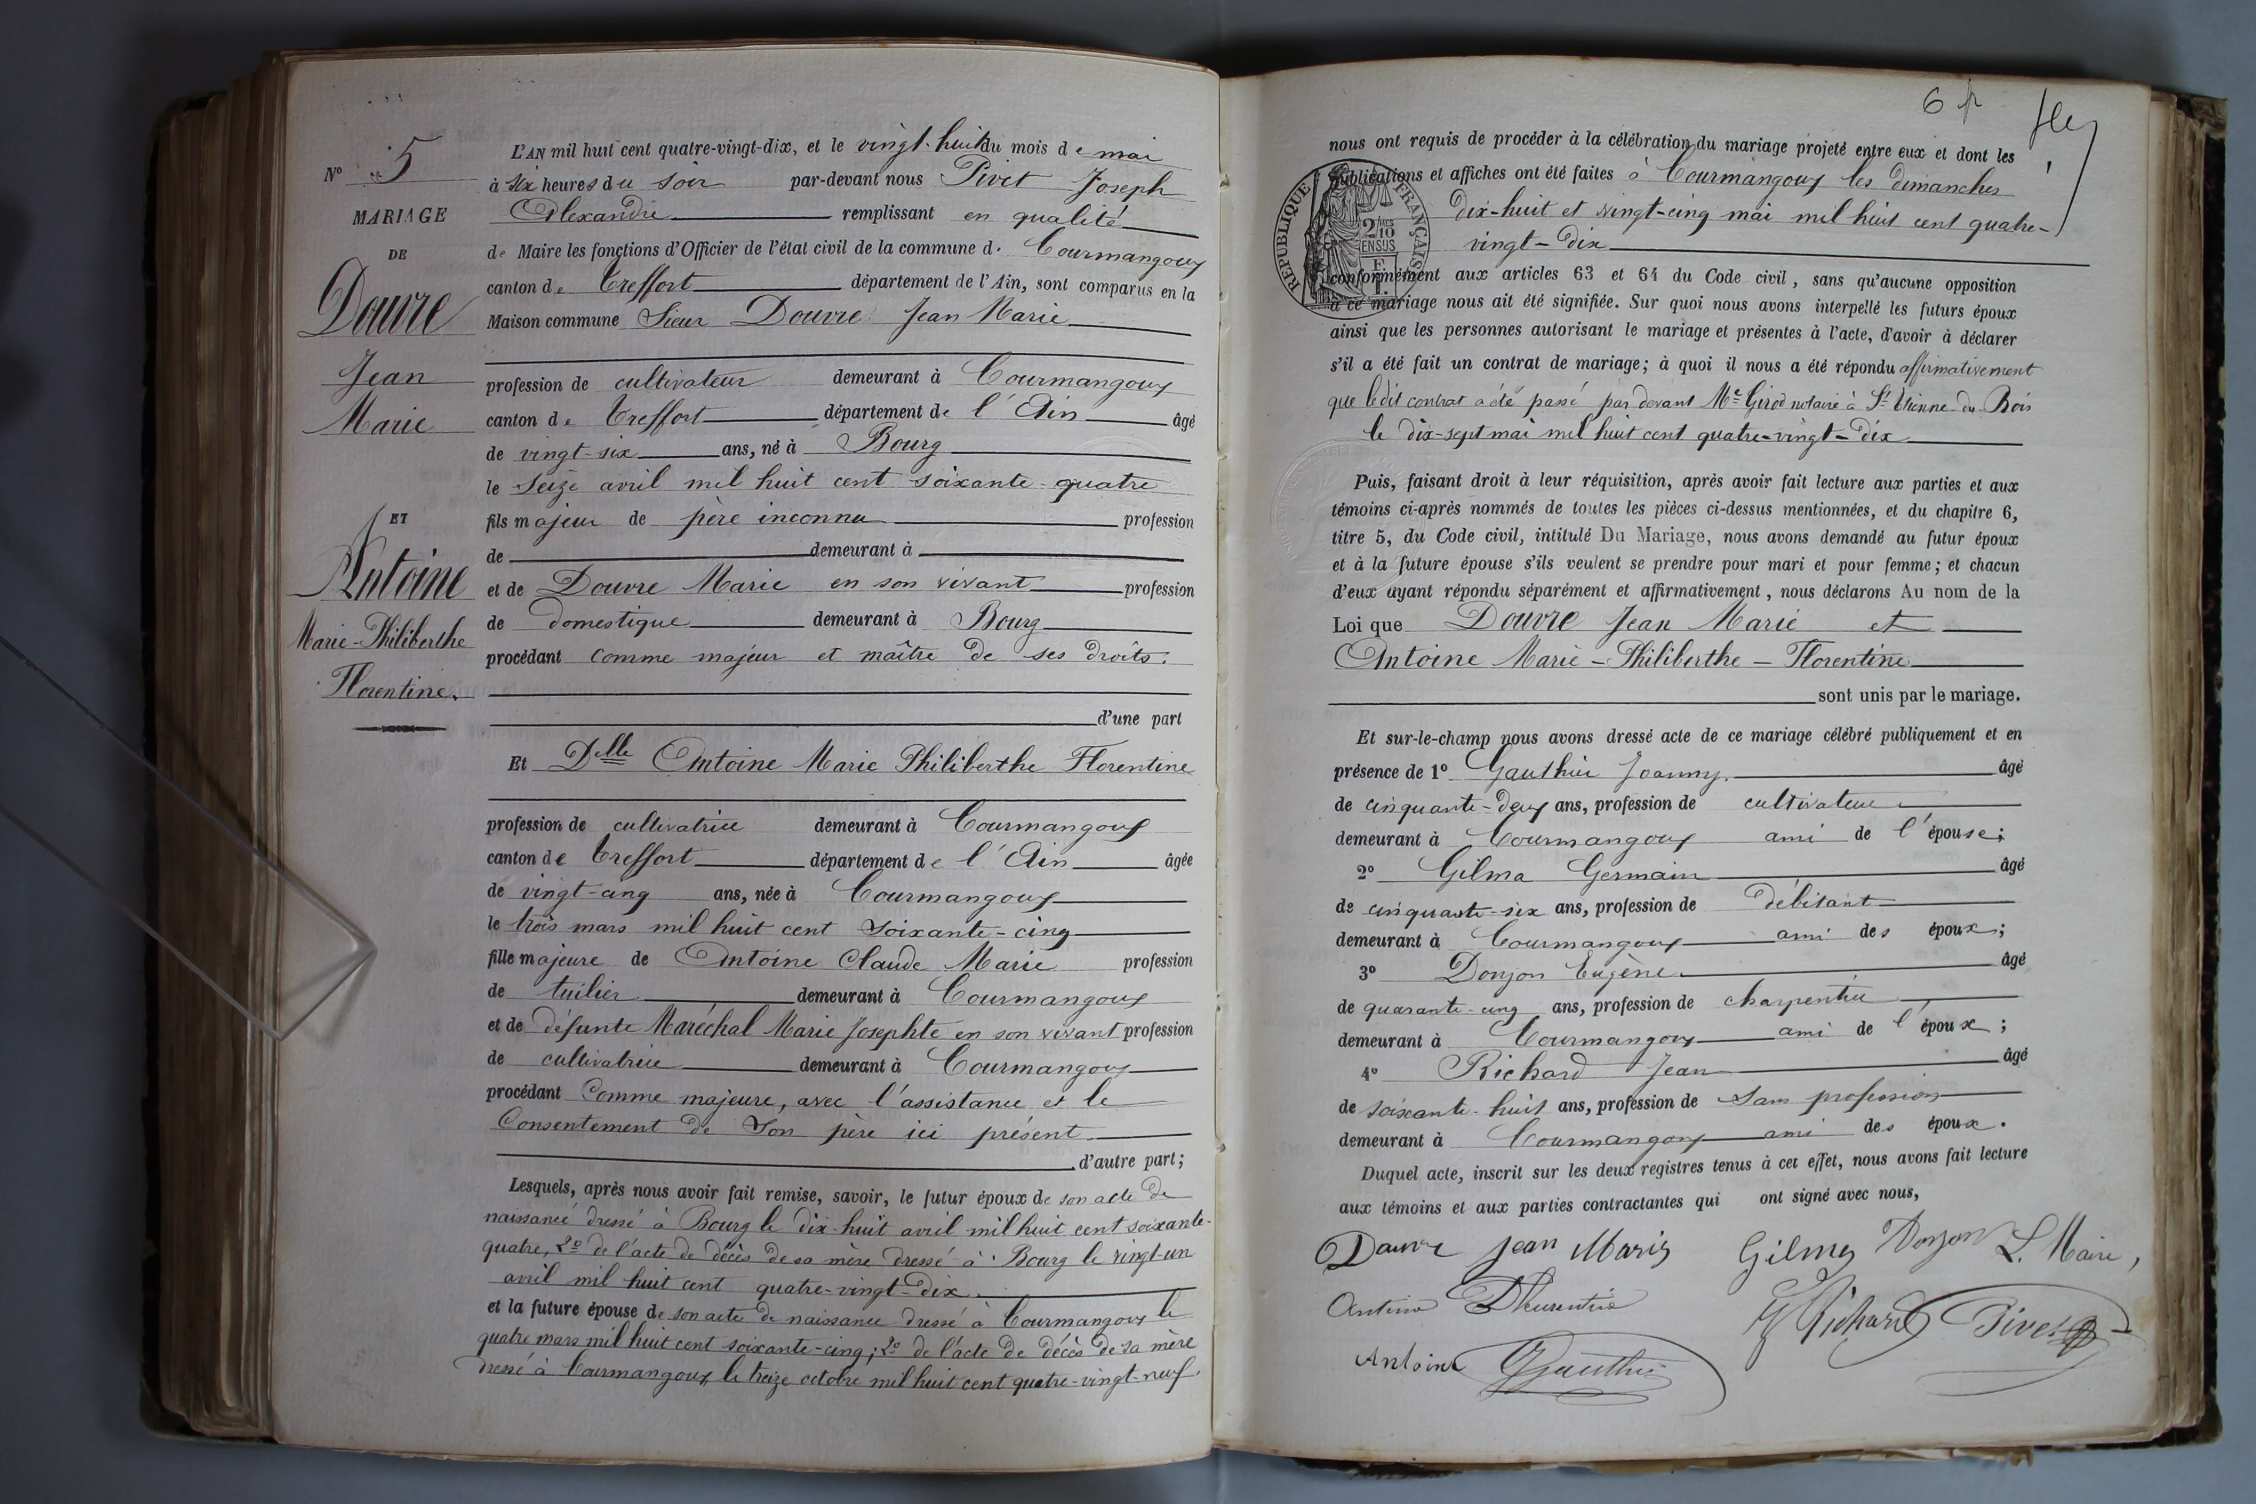 N° 5
MARIAGE
DE
Douvre
Jean
Marie
ET
Antoine
Marie-Philiberthe
Florentine.
L'AN mil huit cent quatre-vingt-dix, et le vingt-huit du mois de mai
à six heures du soir par-devant nous Pivet Joseph
Alexandre remplissant en qualité
de Maire les fonctions d'Officier de l'état civil de la commune d. Courmangoux
canton de Treffort département de l'Ain, sont comparus en la
Maison commune Sieur Douvre Jean Marie
profession de cultivateur demeurant à Courmangoux
canton de Treffort département de l'Ain âgé
de vingt-six ans, né à Bourg
le seize avril mil huit cent soixante-quatre
fils majeur de père inconnu profession
de demeurant à
et de Douvre Marie en son vivant profession
de domestique demeurant à Bourg
procédant comme majeur et maître de ses droits.
d'une part
Et Delle Antoine Marie Philiberthe Florentine
profession de cultivatrice demeurant à Courmangoux
canton de Treffort département de l'Ain âgée
de vingt-cinq ans, née à Courmangoux
le trois mars mil huit cent soixante-cinq
fille majeure de Antoine Claude Marie profession
de tuilier demeurant à Courmangoux
et de défunte Maréchal Marie Josephte en son vivant profession
de cultivatrice demeurant à Courmangoux
procédant comme majeure, avec l'assistance et le
Consentement de son père ici présent.
d'autre part;
Lesquels, après nous avoir fait remise, savoir, le futur époux de son acte de
naissance dressé à Bourg le dix-huit avril mil huit cent soixante-
quatre, 2° de l'acte de décès de sa mère dressé à Bourg le vingt-un
avril mil huit cent quatre-vingt-dix.
et la future épouse de son acte de naissance dressé à Courmangoux le
quatre mars mil huit cent soixante-cinq; 2° de l'acte de décès de sa mère
dressé à Courmangoux le treize octobre mil huit cent quatre-vingt-neuf.
6
nous ont requis de procéder à la célébration du mariage projeté entre eux et dont les
publications et affiches ont été faites à Courmangoux les dimanches
dix-huit et vingt-cinq mai mil huit cent quatre-
vingt-dix
RÉPUBLIQUE FRANÇAISE
2/10
EN SUS
conformément aux articles 63 et 64 du Code civil, sans qu'aucune opposition
à ce mariage nous ait été signifiée. Sur quoi nous avons interpellé les futurs époux
ainsi que les personnes autorisant le mariage et présentes à l'acte, d'avoir à déclarer
s'il a été fait un contrat de mariage; à quoi il nous a été répondu affirmativement
que ledit contrat a été passé par devant Me Girod notaire à St Etienne du Bois
le dix-sept mai mil huit cent quatre-vingt-dix
Puis, faisant droit à leur réquisition, après avoir fait lecture aux parties et aux
témoins ci-après nommés de toutes les pièces ci-dessus mentionnées, et du chapitre 6,
titre 5, du Code civil, intitulé Du Mariage, nous avons demandé au futur époux
et à la future épouse s'ils veulent se prendre pour mari et pour femme; et chacun
d'eux ayant répondu séparément et affirmativement, nous déclarons Au nom de la
Loi que Douvre Jean Marie et
Antoine Marie-Philiberthe-Florentine
sont unis par le mariage.
Et sur-le-champ nous avons dressé acte de ce mariage célébré publiquement et en
présence de 1° Gauthier Joanny. âgé
de cinquante-deux ans, profession de cultivateur
demeurant à Courmangoux ami de l'épouse;
2° Gilma Germain âgé
de cinquante-six ans, profession de débitant
demeurant à Courmangoux ami des époux;
3° Donjon Eugène âgé
de quarante-cinq ans, profession de charpentier
demeurant à Courmangoux ami de l'époux;
4° Richard Jean âgé
de soixante-huit ans, profession de sans profession
demeurant à Courmangoux ami des époux.
Duquel acte, inscrit sur les deux registres tenus à cet effet, nous avons fait lecture
aux témoins et aux parties contractantes qui ont signé avec nous,
Douvre Jean Marie Gilma Donjon L. Maire,
Antoine Richard Pivet
Antoine Gauthier